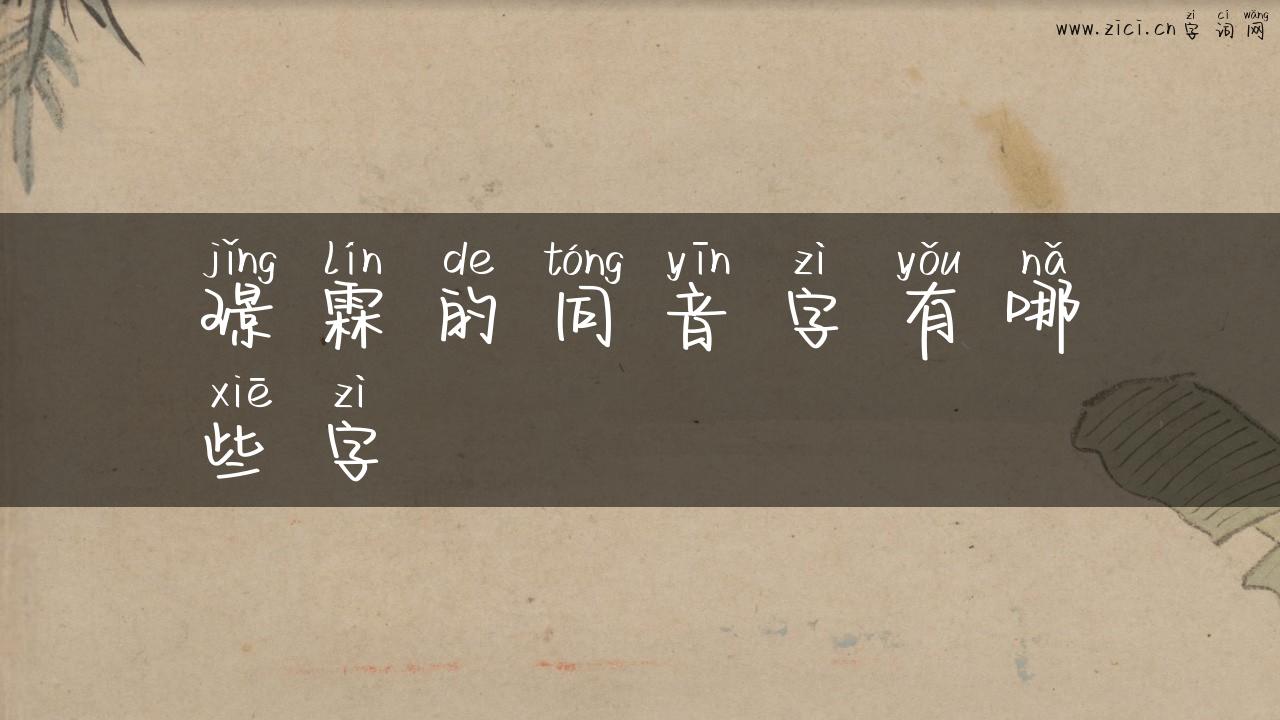 zì cí wǎng
www.zici.cn 字 词 网
jǐng lín de tóng yīn zì yǒu nǎ
璟 霖 的 同 音 字 有 哪
xiē zì
些 字